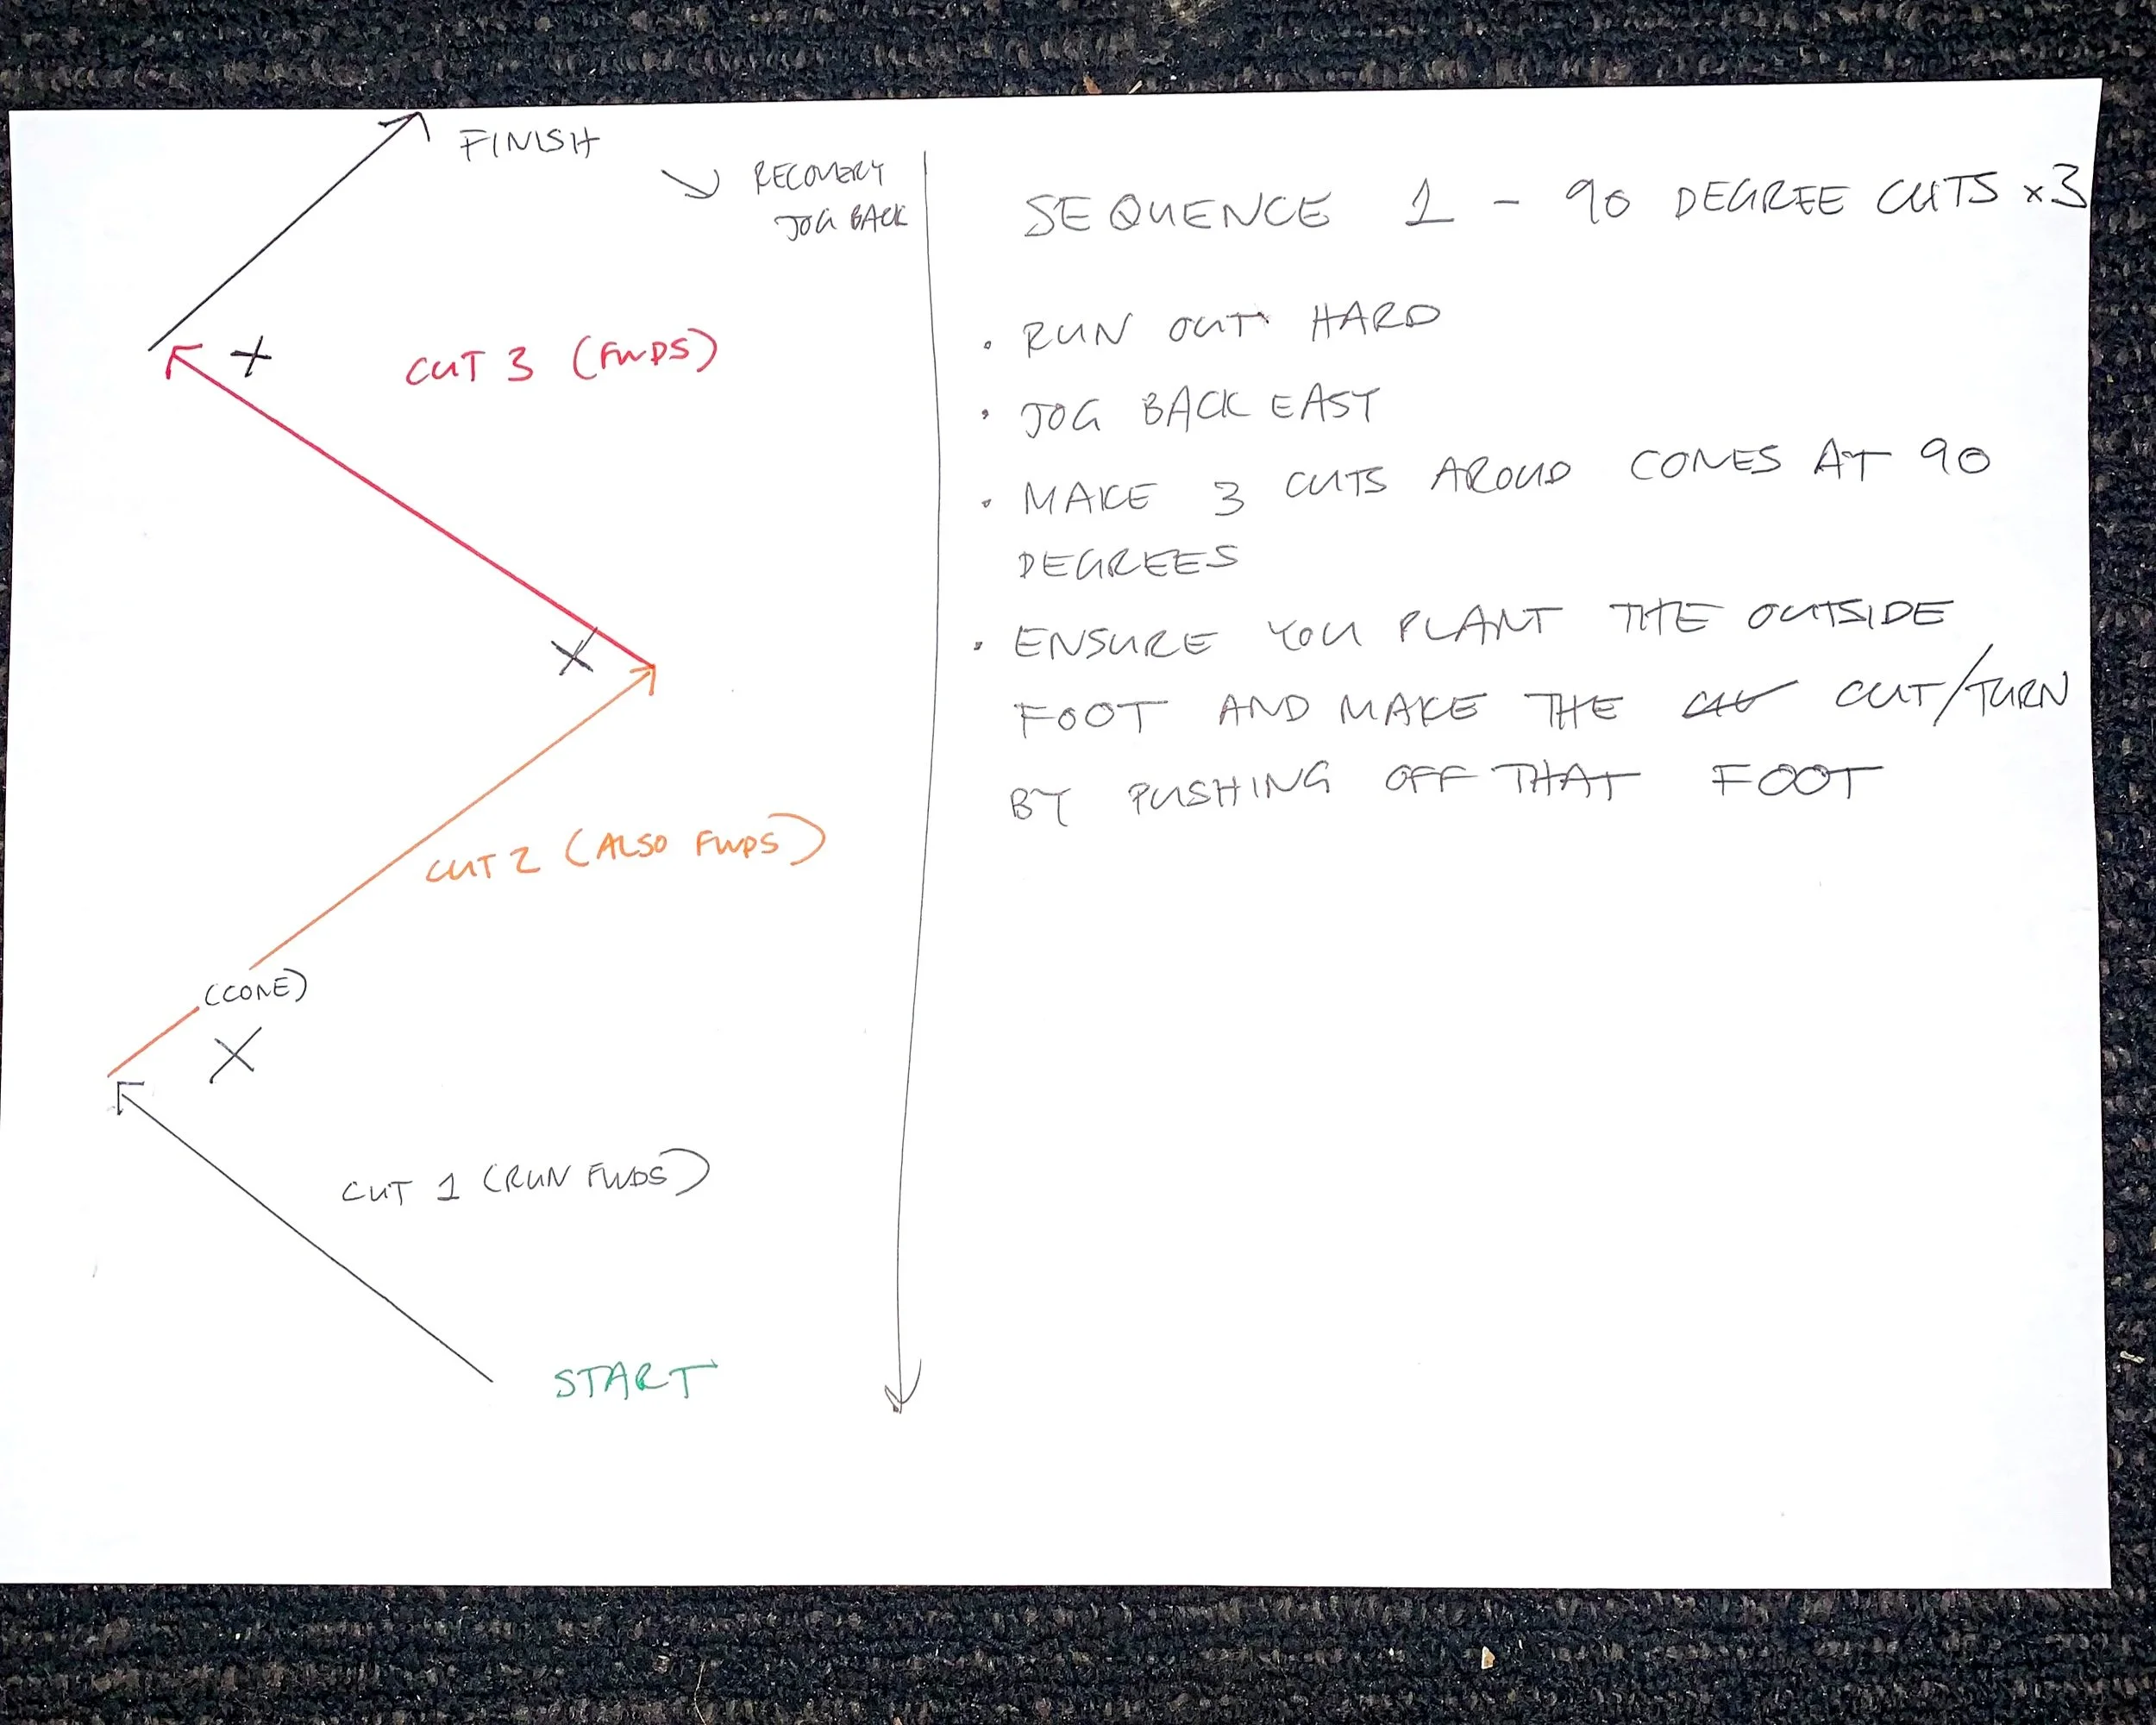 FINISH
RECOVERY
JOG BACK
CUT 3 (FWDS)
CUT 2 (ALSO FWDS)
(CONE)
CUT 1 (RUN FWDS)
START
SEQUENCE 1 - 90 DEGREE CUTS x3
• RUN OUT HARD
• JOG BACK EAST
• MAKE 3 CUTS AROUD CONES AT 90
DEGREES
• ENSURE YOU PLANT THE OUTSIDE
FOOT AND MAKE THE CUT/TURN
BY PUSHING OFF THAT FOOT